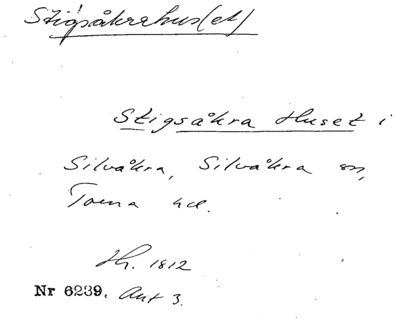 Stigsåkrahus(et)
Stigsåkra Huset i
Silvåkra, Silvåkra sn,
Torna hd.
Jh. 1812
Nr 6239. Akt 3.